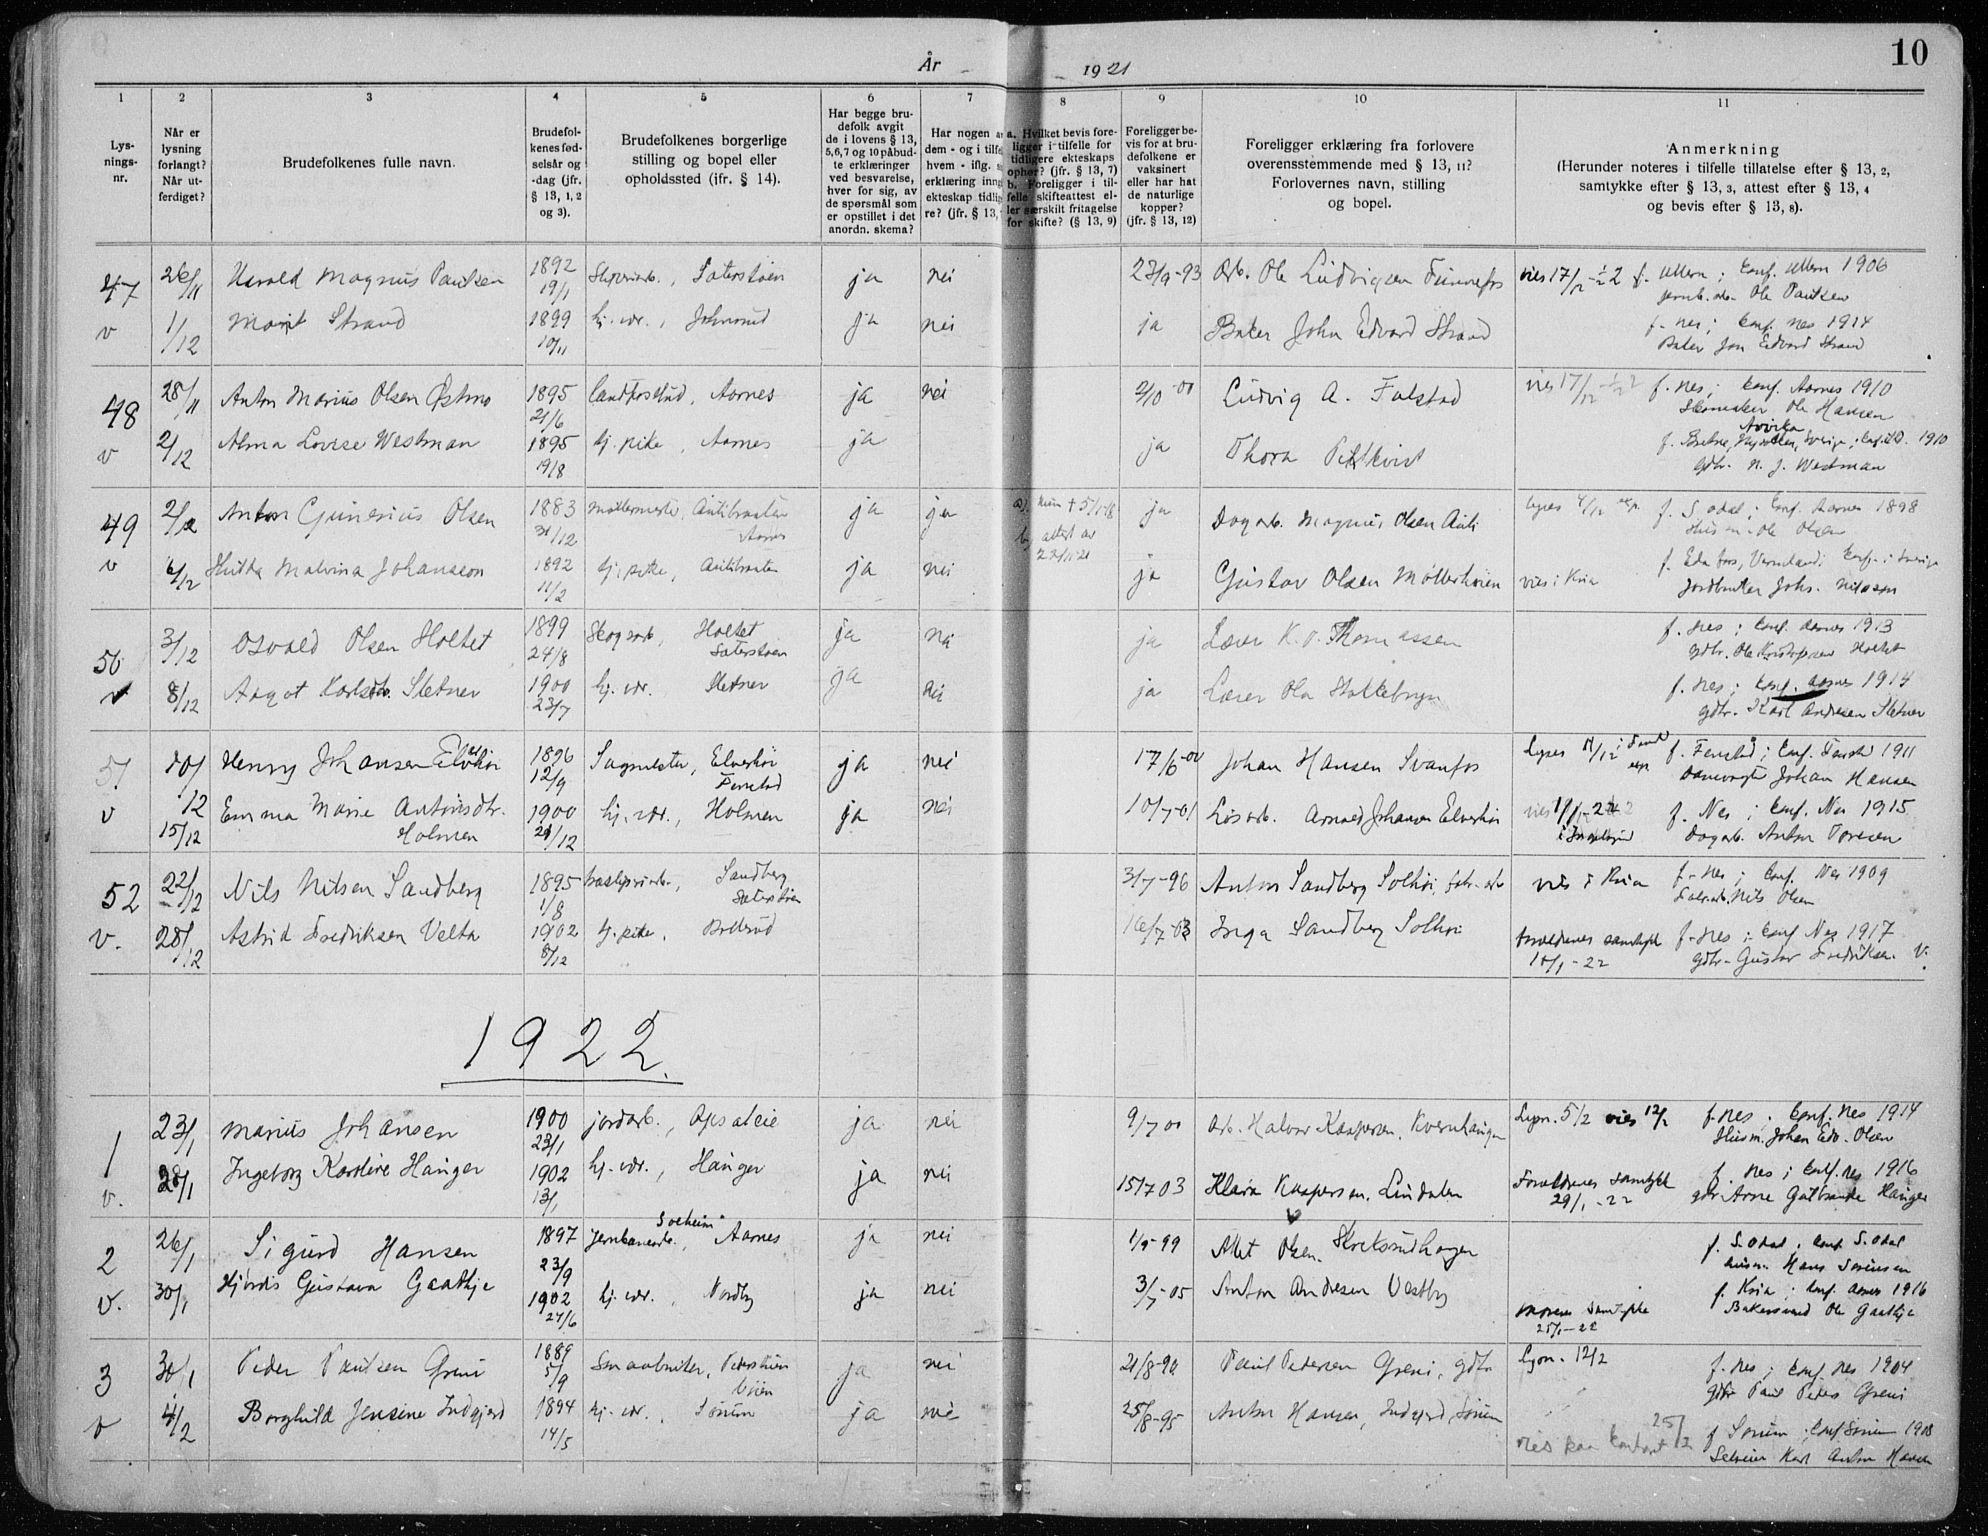 10
År 1921
1 2 3 4 5 6 7 8 9 10 11
Lys-
nings-
nr.
Når er
lysning
forlangt?
Når ut-
ferdiget?
Brudefolkenes fulle navn.
Brudefol-
kenes fød-
selsår og
-dag (jfr.
§ 13, 1, 2
og 3).
Brudefolkenes borgerlige
stilling og bopel eller
opholdssted (jfr. § 14).
Har begge bru-
defolk avgit
de i lovens § 13,
5,6,7 og 10 påbud-
te erklæringer
ved besvarelse,
hver for sig, av
de spørsmål som
er opstillet i det
anordn. skema?
Har nogen a
dem - og i tilfe
hvem - iflg.
erklæring inng
ekteskap tidlig
re? (jfr. § 13,
a. Hvilket bevis fore-
ligger i tilfelle for
tidligere ekteskaps
ophør? (jfr. § 13, 7)
b. Foreligger i til-
felle skifteattest el-
ler særskilt fritagelse
for skifte? (§ 13, 9)
Foreligger be-
vis for at bru-
defolkene er
vaksinert
eller har hat
de naturlige
kopper?
(jfr. § 13, 12)
Foreligger erklæring fra forlovere
overensstemmende med § 13, 11?
Forlovernes navn, stilling
og bopel.
Anmerkning
(Herunder noteres i tilfelle tillatelse efter § 13, 2,
samtykke efter § 13, 3, attest efter § 13, 4
og bevis efter § 13, 8).
47 26/11 Harald Magnus Paulsen 1892 19/1 Sæterstøen ja nei 23/9-93 Arb. Ole Ludvigsen Funnefos vies 17/12 f. Ullern; Conf. Ullern 1906
jernb.arb. Ole Paulsen
v 1/12 Marit Strand 1899 10/11 hj. vær., Johnsrud ja nei ja Baker John Edvard Strand f. Nes; Conf. Nes 1914
Baker Jon Edvard Strand
48 28/11 Anton Marius Olsen Østmo 1895 21/6 Landpostbud, Aarnes ja nei 2/10-00 Ludvig A. Fulstad vies 17/12 f. Nes; Conf. Aarnes 1910
Skomaker Ole Hansen
v 2/12 Alma Lovise Westman 1895 19/8 hj. pike, Aarnes ja ja Thora Pihlkvist Arvika Sverige; 1910
gdbr. N. J. Westman
49 2/12 Anton Gunerius Olsen 1883 31/12 møllermester, Autibraaten Aarnes ja ja a) hun + 5/1-18 ja Dagarb. Magnus Olsen Auli lyses 4/12 f. S. Odal; Conf. Aarnes 1898
Husm. Ole Olsen
b) attest av 22/11-21
v 6/12 Hulda Malvina Johansson 1892 11/2 hj. pike, Autibraaten ja nei ja Gustav Olsen Møllerhøien vies i Kria f. Eda fors, Vermland; Conf. i Sverige
Jordbruker Johs. Nilsson
50 3/12 Osvald Olsen Holtet 1899 24/8 Skogsarb., Holtet Sæterstøen ja nei ja Lærer K. O. Thomassen f. Nes; Conf. Aarnes 1913
gdbr. Ole Kristofersen Holtet
v 8/12 Aagot Karlsdtr. Sletner 1900 23/7 hj. vær. Sletner ja nei ja Lærer Ola Stallebryn f. Nes; Conf. Aarnes 1914
gdbr. Karl Andresen Sletner
51 10/12 Henny Johansen Elverhøi 1896 12/9 Sagmester, Elverhøi Fenstad ja nei 17/6-00 Johan Hansen Svanfos Lyses 11/12 f. Fenstad; Conf. Fenstad 1911
Damvogter Johan Hansen
v 15/12 Emma Marie Antonsdtr. Holmen 1900 29/12 hj. vær., Holmen ja nei 10/7-01 Løsarb. Arnold Johansen Elverhøi vies f. Nes; Conf. Nes 1915
Dagarb. Anton Toresen
52 22/12 Nils Nilsen Sandberg 1895 1/8 Sandberg Sæterstøen 3/7-96 Anton Sandberg Solhøi, fabr. arb vies i Kria f. Nes; Conf. Nes 1909
Nils Olsen
v. 28/12 Astrid Fredriksen Velta 1902 8/12 hj. pike, Boderud 16/7-03 Inga Sandberg Solhøi foreldrenes samtykke 10/1-22 f. Nes; Conf Nes 1917
gdbr. Gustav Fredriksen V.
1922.
1 23/1 Marius Johansen 1900 23/1 jordarb., Opsaleie ja nei 9/7 00 Arb. Halvor Kaspersen, Kvernhaugen Lysn. 5/2 vies 12/2 f. Nes; Conf. Nes 1914
Husm. Johan Edv. Olsen
v. 28/1 Ingeborg Karoline Hauger 1902 13/1 hj. vær., Hauger ja nei 15/7 03 Klara Kaspersen, Lindalen Foreldrenes samtykke 29/1-22 f. Nes; Conf. Nes 1916
gdbr. Arne Gulbrandsen Hauger
2 26/1 Sigurd Hansen 1897 23/9 Jernbanearb., Solheim Aarnes ja nei 1/9-99 Olsen Skriksrudhaugen f. S. Odal; Conf S. Odal
husm. Hans Sørensen
v. 30/1 Hjørdis Gustava Gaathje 1902 27/6 hj. vær., Nordby ja nei 3/7-05 Anton Andresen Vestby Morens samtykke 25/1-22 f. Kria; Conf. Aarnes 1916
Bakersvend Ole Gaathje
3 30/1 Peder Paulsen Greni 1889 5/9 Smaabruker, ja nei 21/8-90 Paul Pedersen Greni, gdbr. Lysn. 12/2 f. Nes; Conf Nes 1904
Gdbr Paul Peders Greni
v 4/2 Borghild Jensine Indgjerd 1894 14/5 hj. vær., Sørum ja nei 25/8-95 Anton Hansen, Indgjerd, Sørum vies paa kontoret 25/2 f Sørum; Conf Sørum 1908
Selveier Karl Anton Hansen